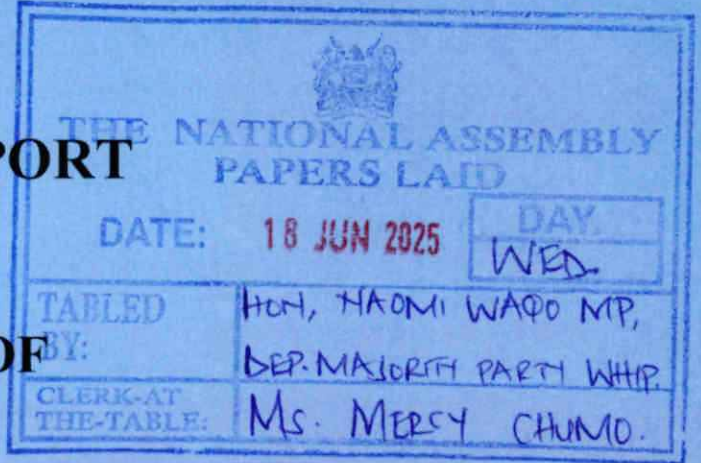 PORT
OF
THE NATIONAL ASSEMBLY
PAPERS LAID
DATE: 18 JUN 2025 DAY.
WED.
TABLED BY: HON, NAOMI WAQO MP,
DEP. MAJORITY PARTY WHIP.
CLERK-AT THE-TABLE: Ms. MERCY CHUMO.